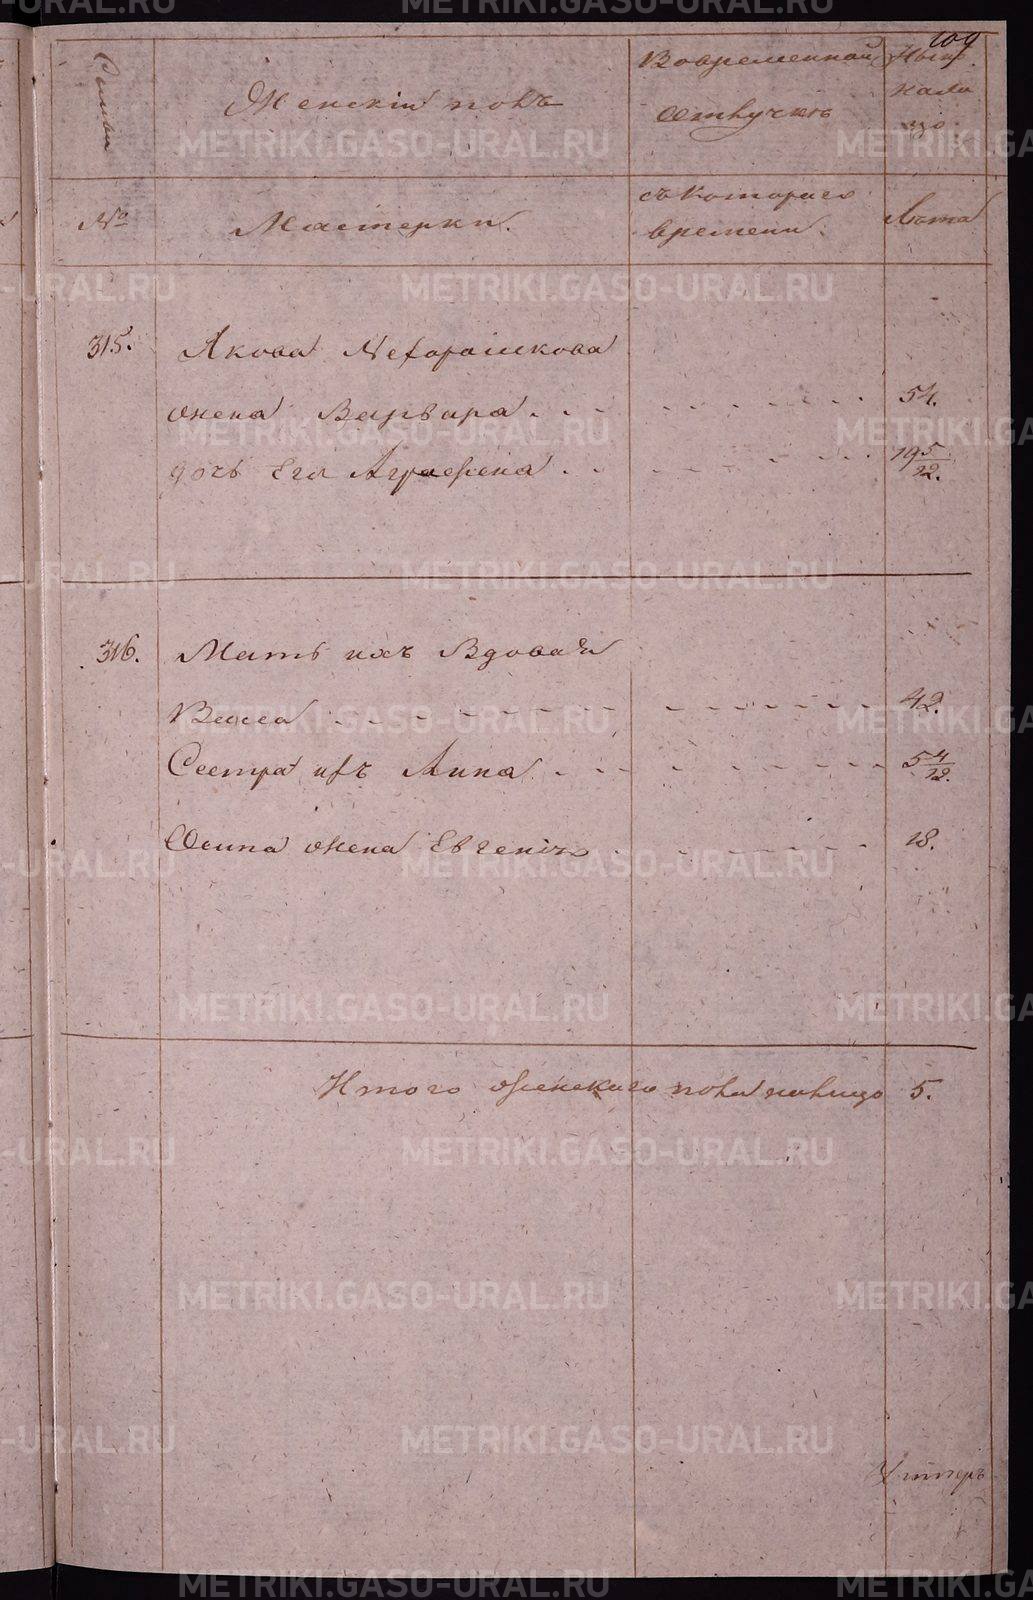 109
Семьи
Женскій полъ
Во временной отлучкѣ
Нынѣ на лицо
№
Мастерки.
съ котораго времени.
Лѣта
315.
Якова Нехорошкова
жена Варвара 54.
дочь его Аграфена 19 5/12.
316.
Мать ихъ вдовая
Васса 42.
Сестра ихъ Анна 5 4/12.
Осипа жена Евгенія 18.
Итого женскаго пола на лицо 5.
METRIKI.GASO-URAL.RU